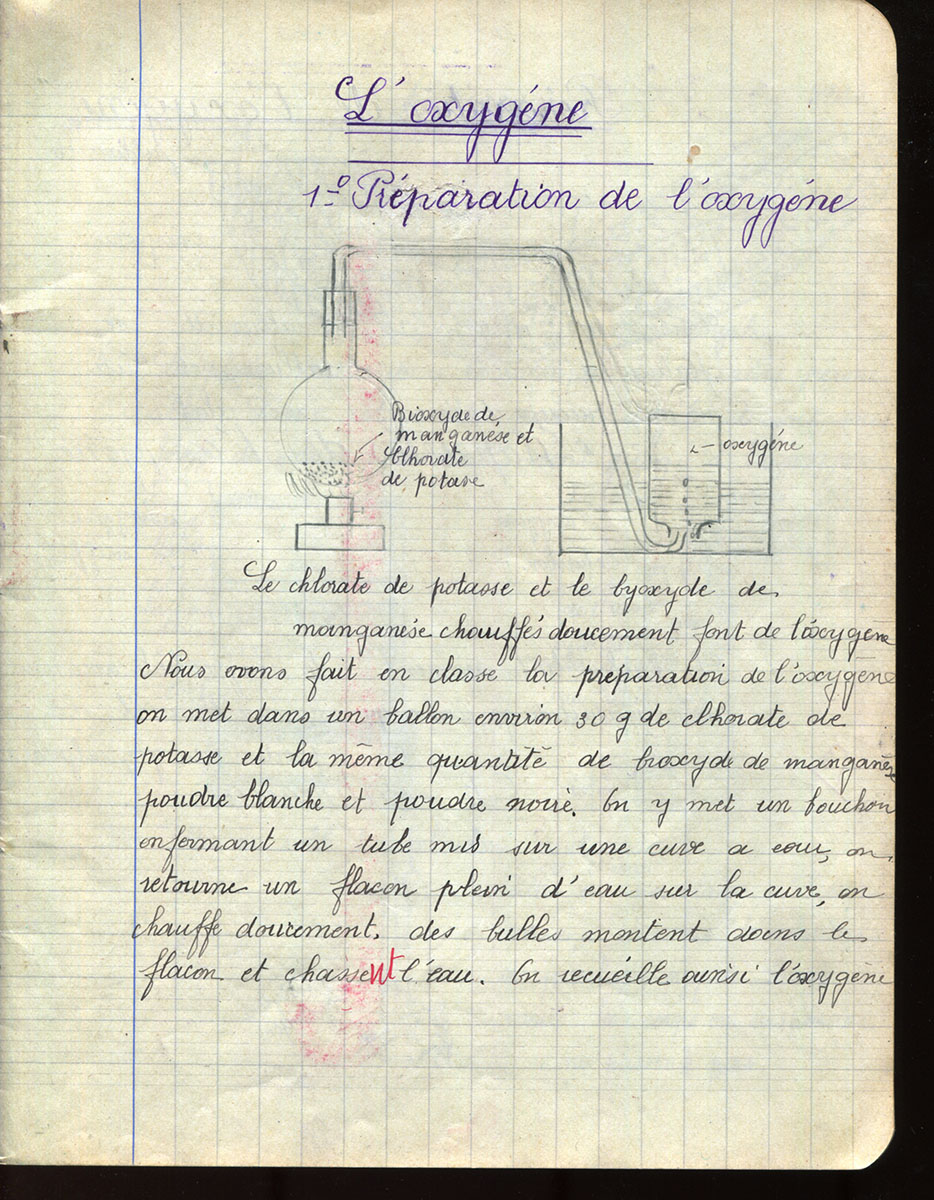 L'oxygéne
1º Préparation de l'oxygéne
Bioxyde de
manganése et
Clhorate
de potasse
oxygéne
Le chlorate de potasse et le byoxyde de
manganése chauffés doucement font de l'oxygéne
Nous avons fait en classe la préparation de l'oxygéne
on met dans un ballon environ 30 g de clhorate de
potasse et la même quantité de bioxyde de manganése
poudre blanche et poudre noire. On y met un bouchon
enfermant un tube mis sur une cuve a eau, on
retourne un flacon plein d'eau sur la cuve, on
chauffe doucement. des bulles montent dans le
flacon et chassent l'eau. On recuéille ainsi l'oxygéne